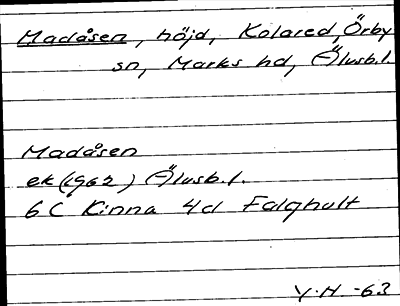 Madåsen, höjd, Kolared, Örby
sn, Marks hd, Älvsb.l.
Madåsen
ek (1962) Älvsb.l.
6 C Kinna 4d Falghult
V.H. -63